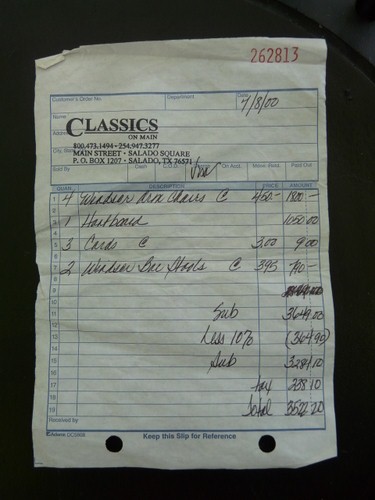 262813
Customer's Order No. Department Date 7/8/00
Name
CLASSICS
Address ON MAIN
800.473.1494 • 254.947.3277
City, MAIN STREET • SALADO SQUARE
P. O. BOX 1207 • SALADO, TX 76571
Sold By Cash C.O.D. Visa On Acct. Mdse. Retd. Paid Out
QUAN. DESCRIPTION PRICE AMOUNT
1 4 Windsor Arm Chairs @ 450.- 1800.-
2
3 1 Huntboard 1050.00
4
5 3 Cards @ 3.00 9.00
6
7 2 Windsor Bar Stools @ 395 790.-
8
9
10
11 Sub 3649.00
12
13 Less 10% (364.90)
14
15 Sub 3284.10
16
17 tax 238.10
18
19 Total 3522.20
Received by
Adams DC5808 Keep this Slip for Reference